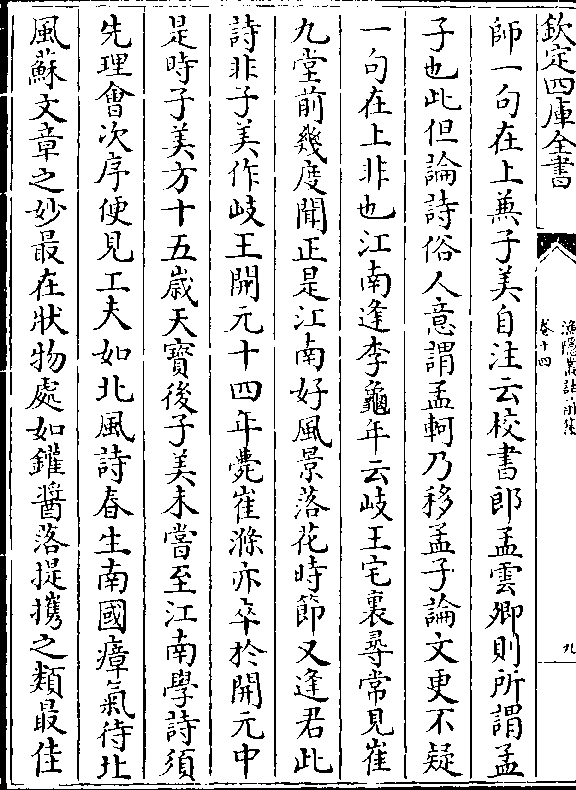 欽定四庫全書
漁隱叢話前集
卷十四
九
師一句在上兼子美自注云校書郎孟雲卿則所謂孟
子也此但論詩俗人意謂孟軻乃移孟子論文更不疑
一句在上非也江南逢李龜年云岐王宅裏尋常見崔
九堂前幾度聞正是江南好風景落花時節又逢君此
詩非子美作岐王開元十四年薨崔滌亦卒於開元中
是時子美方十五歲天寶後子美未嘗至江南學詩須
先理會次序便見工夫如北風詩春生南國瘴氣待北
風蘇文章之妙最在狀物處如鑵醬落提攜之類最佳